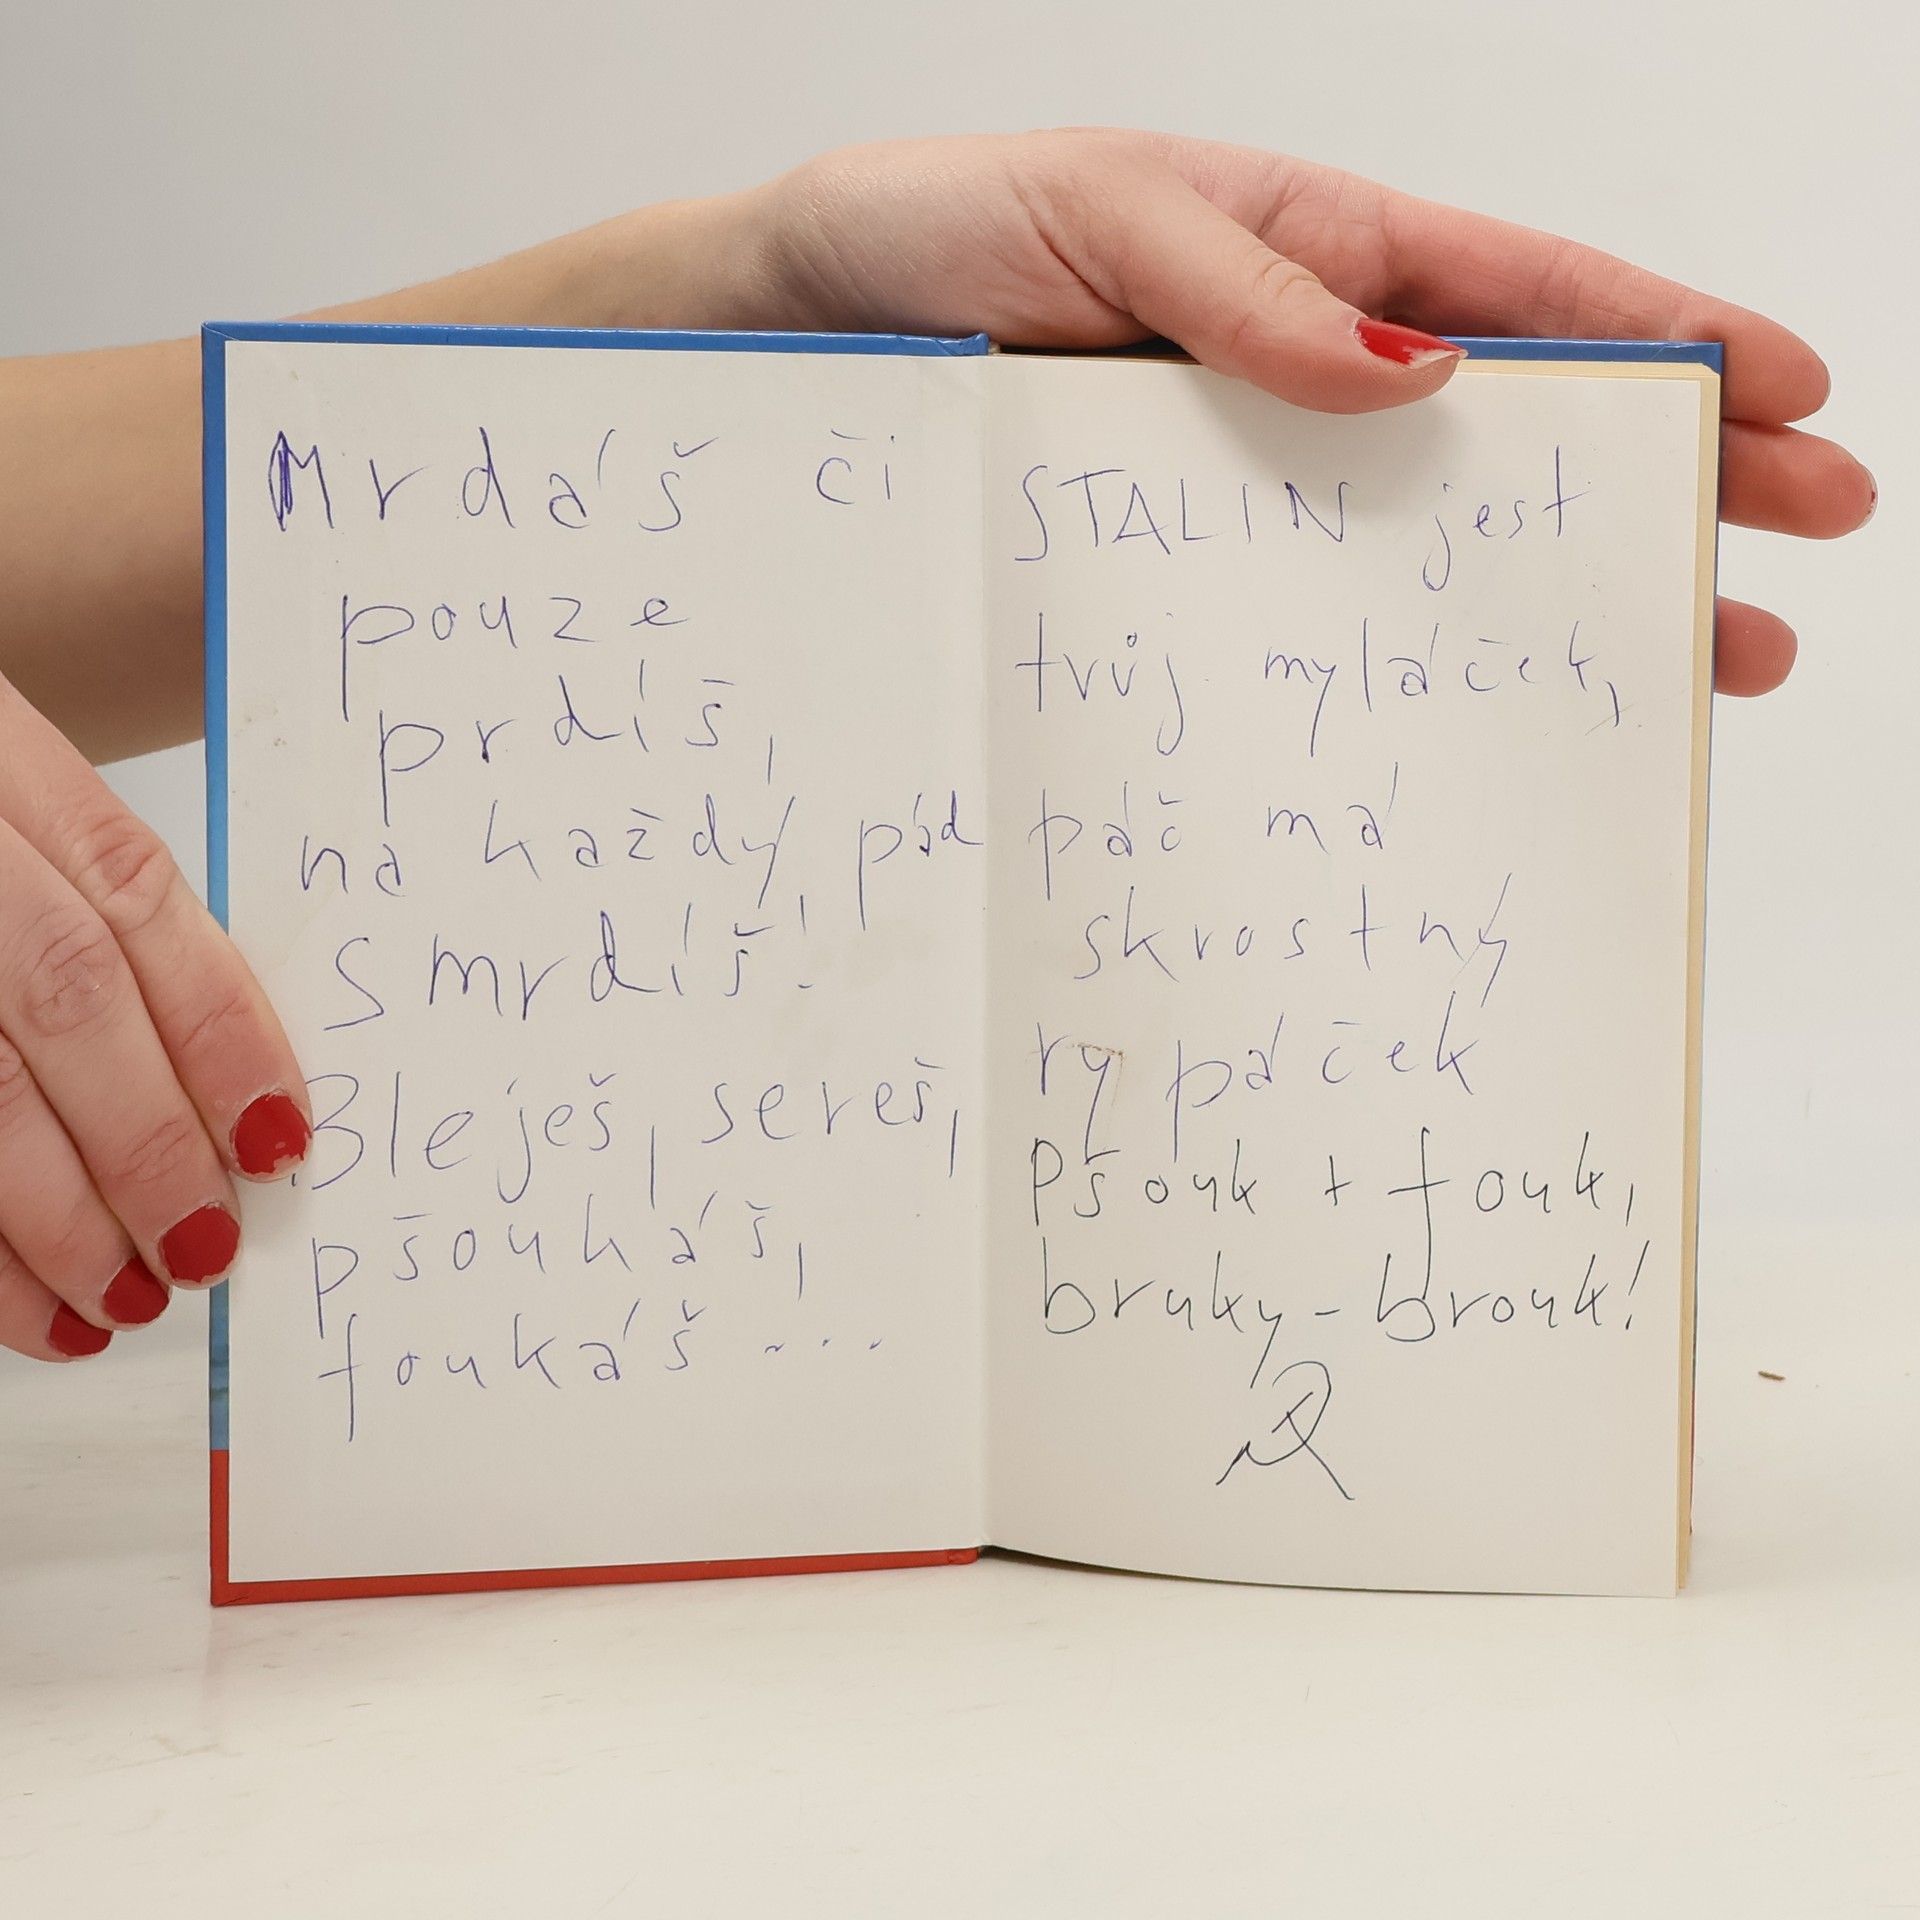 Mrdáš či
pouze
prdíš,
na každý pád
smrdíš!
Bleješ, sereš,
pšoukáš,
foukáš ...
STALIN jest
tvůj myláček,
páč má
skrostný
rypáček
Pšouk + fouk,
bruky-brouk!